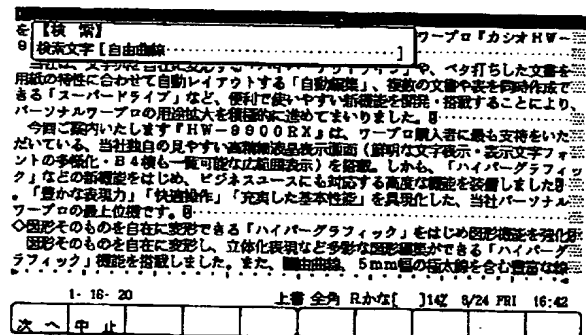 を【検 索】ワープロ『カシオHW-
9 検索文字[自由曲線]
当社は、文字列を自在に変形する「ハイパーグラフィック」や、ベタ打ちした文書を
用紙の特性に合わせて自動レイアウトする「自動編集」、複数の文書や表を同時作成で
きる「スーパードライブ」など、便利で使いやすい新機能を開発・搭載することにより、
パーソナルワープロの用途拡大を積極的に進めてまいりました。
今回ご案内いたします『HW-9900RX』は、ワープロ購入者に最も支持をいた
だいている、当社独自の見やすい高精細液晶表示画面(鮮明な文字表示・表示文字フォ
ントの多様化・B4横も一覧可能な広範囲表示)を搭載。しかも、「ハイパーグラフィッ
ク」などの新機能をはじめ、ビジネスユースにも対応する高度な機能を装備しました
。「豊かな表現力」「快適操作」「充実した基本性能」を具現化した、当社パーソナル
ワープロの最上位機です。
◇図形そのものを自在に変形できる「ハイパーグラフィック」をはじめ図形機能を強化
図形そのものを自在に変形し、立体化表現など多彩な図形編集ができる「ハイパーグ
ラフィック」機能を搭載しました。また、自由曲線、5mm幅の極太線を含む豊富な線
1- 16- 20 上書 全角 Rかな[ ]14Z 8/24 FRI 16:42
次 へ 中 止